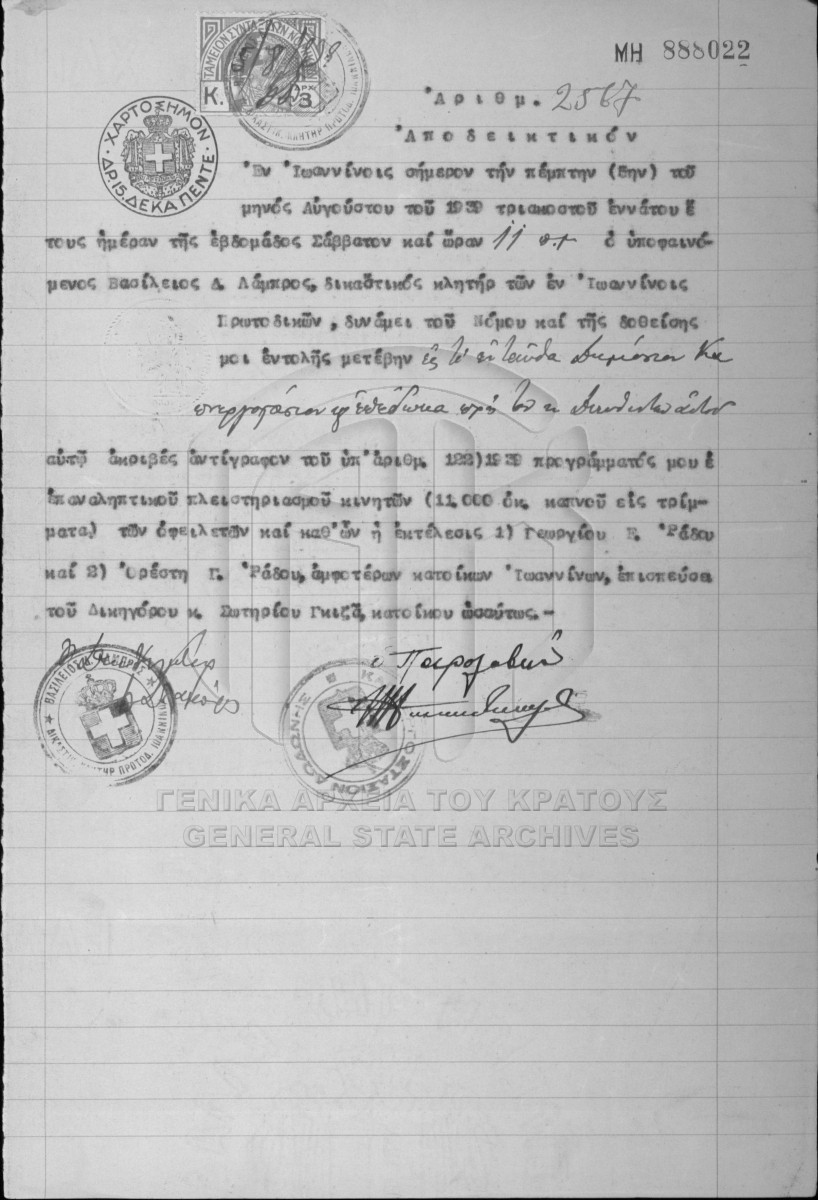 ΜΗ 888022
ΤΑΜΕΙΟΝ ΣΥΝΤΑΞΕΩΝ ΝΟΜ
Κ. 3
ΧΑΡΤΟΣΗΜΟΝ
ΔΡ. 15. ΔΕΚΑΠΕΝΤΕ
Ἀριθμ. 2567
Ἀποδεικτικόν
Ἐν Ἰωαννίνοις σήμερον τήν πέμπτην (5ην) τοῦ
μηνός Αὐγούστου τοῦ 1939 τριακοστοῦ ἐννάτου ἔ
τους ἡμέραν τῆς ἑβδομάδος Σάββατον καί ὥραν 11 π.μ ὁ ὑποφαινό-
μενος Βασίλειος Δ. Λάμπρος, δικαστικός κλητήρ τῶν ἐν Ἰωαννίνοις
Πρωτοδικῶν, δυνάμει τοῦ Νόμου καί τῆς δοθείσης
μοι ἐντολῆς μετέβην εἰς τό ἐνταῦθα Δημόσιον Κα
πνεργοστάσιον ἐπέδωκα πρός τόν κ. Διευθυντήν αὐτοῦ
αὐτῷ ἀκριβές ἀντίγραφον τοῦ ὑπ' ἀριθμ. 122)1939 προγράμματός μου ἐ
ἐπαναληπτικοῦ πλειστηριασμοῦ κινητῶν (11.000 ὀκ. καπνοῦ εἰς τρίμ-
ματα) τῶν ὀφειλετῶν καί καθ' ὧν ἡ ἐκτέλεσις 1) Γεωργίου Ε. Ῥάδου
καί 2) Ὀρέστη Γ. Ῥάδου, ἀμφοτέρων κατοίκων Ἰωαννίνων, ἐπισπεύσει
τοῦ Δικηγόρου κ. Σωτηρίου Γκιζᾶ, κατοίκου ὡσαύτως.-
ὁ Παραλαβών
ΒΑΣΙΛΕΙΟΣ Δ. ΛΑΜΠΡΟΣ
ΔΙΚΑΣΤΙΚ. ΚΛΗΤΗΡ ΠΡΩΤΟΔ. ΙΩΑΝΝΙΝΩΝ
ΓΕΝΙΚΑ ΑΡΧΕΙΑ ΤΟΥ ΚΡΑΤΟΥΣ
GENERAL STATE ARCHIVES